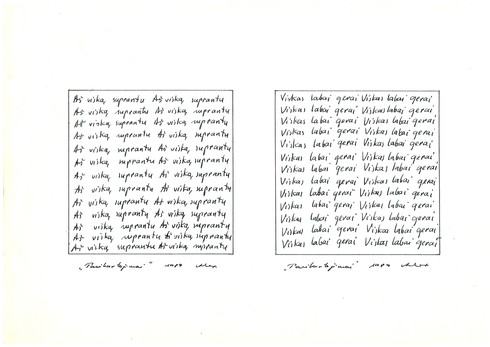 Aš viską suprantu Aš viską suprantu
Aš viską suprantu Aš viską suprantu
Aš viską suprantu Aš viską suprantu
Aš viską suprantu Aš viską suprantu
Aš viską suprantu Aš viską suprantu
Aš viską suprantu Aš viską suprantu
Aš viską suprantu Aš viską suprantu
Aš viską suprantu Aš viską suprantu
Aš viską suprantu Aš viską suprantu
Aš viską suprantu Aš viską suprantu
Aš viską suprantu Aš viską suprantu
Aš viską suprantu Aš viską suprantu
Aš viską suprantu Aš viską suprantu
„Pasikartojimai"
Viskas labai gerai Viskas labai gerai
Viskas labai gerai Viskas labai gerai
Viskas labai gerai Viskas labai gerai
Viskas labai gerai Viskas labai gerai
Viskas labai gerai Viskas labai gerai
Viskas labai gerai Viskas labai gerai
Viskas labai gerai Viskas labai gerai
Viskas labai gerai Viskas labai gerai
Viskas labai gerai Viskas labai gerai
Viskas labai gerai Viskas labai gerai
Viskas labai gerai Viskas labai gerai
Viskas labai gerai Viskas labai gerai
Viskas labai gerai Viskas labai gerai
„Pasikartojimai"